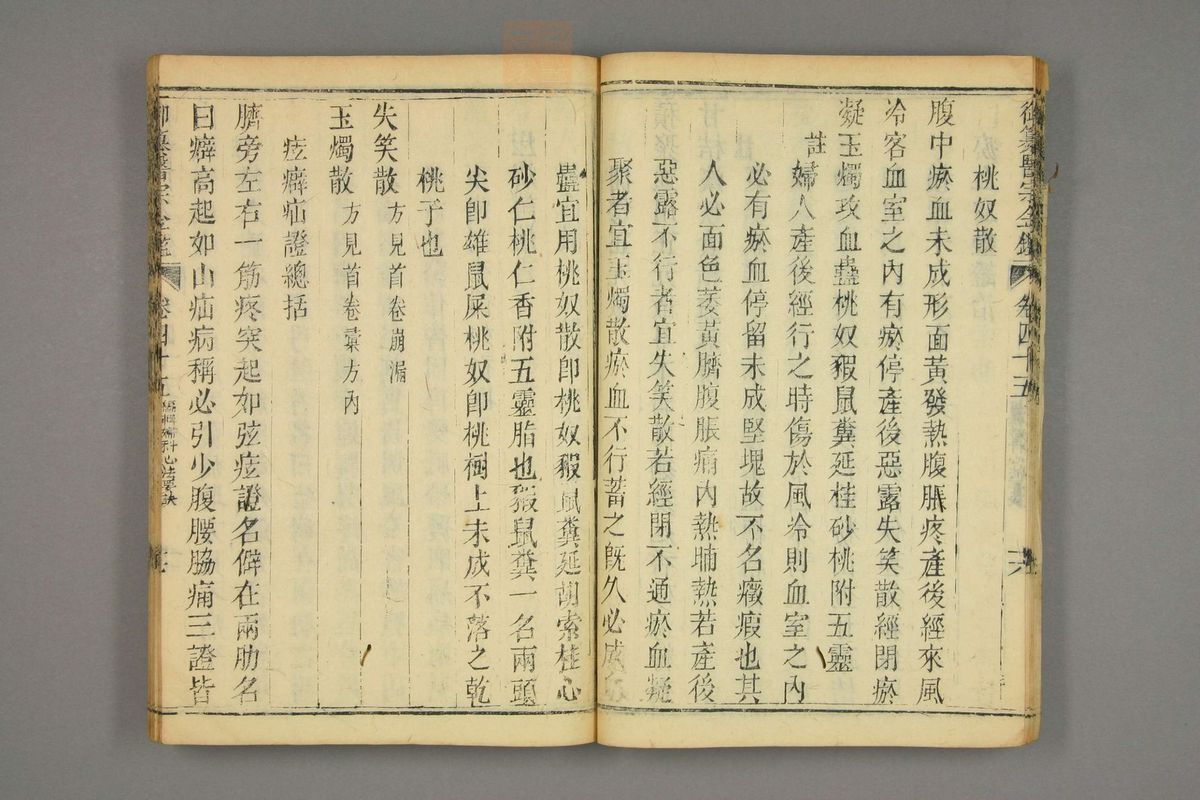 御纂醫宗金鑑 卷四十五 六
桃奴散
腹中瘀血未成形面黃發熱腹脹疼產後經來風
冷客血室之內有瘀停產後惡露失笑散經閉瘀
凝玉燭攻血蠱桃奴豭鼠糞延桂砂桃附五靈
註婦人產後經行之時傷於風冷則血室之內
必有瘀血停留未成堅塊故不名癥瘕也其
人必面色萎黃臍腹脹痛內熱晡熱若產後
惡露不行者宜失笑散若經閉不通瘀血凝
聚者宜玉燭散瘀血不行蓄之旣久必成血
蠱宜用桃奴散卽桃奴豭鼠糞延胡索桂心
砂仁桃仁香附五靈脂也豭鼠糞一名兩頭
尖卽雄鼠屎桃奴卽桃樹上未成不落之乾
桃子也
失笑散 方見首卷崩漏
玉燭散 方見首卷彙方內
痃癖疝證總括
臍旁左右一筋疼突起如弦痃證名僻在兩肋名
曰癖高起如山疝病稱必引少腹腰脇痛三證皆
御纂醫宗金鑑 卷四十五 編輯婦科心法要訣